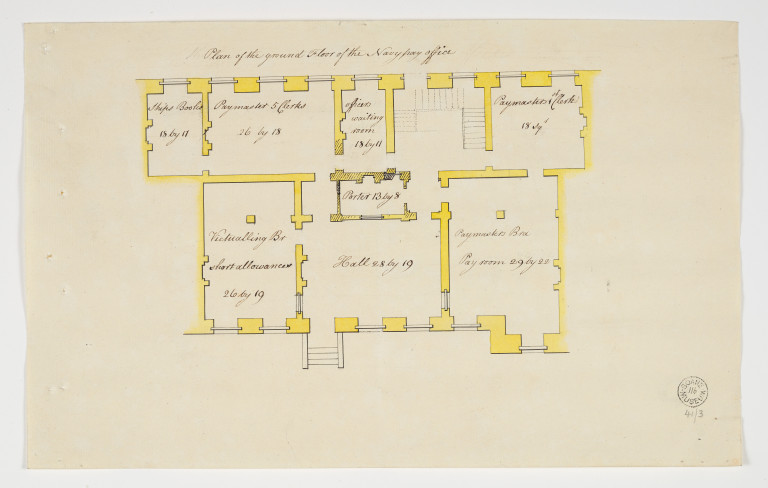 Plan of the ground Floor of the Navy pay office
Ships Books
18 by 11
Paymaster 5 Clerks
26 by 18
officers
waiting
room
18 by 11
Paymasters Clerk
18 sqr
Porter 13 by 8
Victualling Br
short allowances
26 by 19
Hall 28 by 19
Paymasters Bra
Pay room 29 by 22
SOANE
MUSEUM
41/3